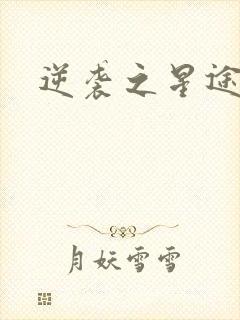 逆袭之星途
月妖雪雪